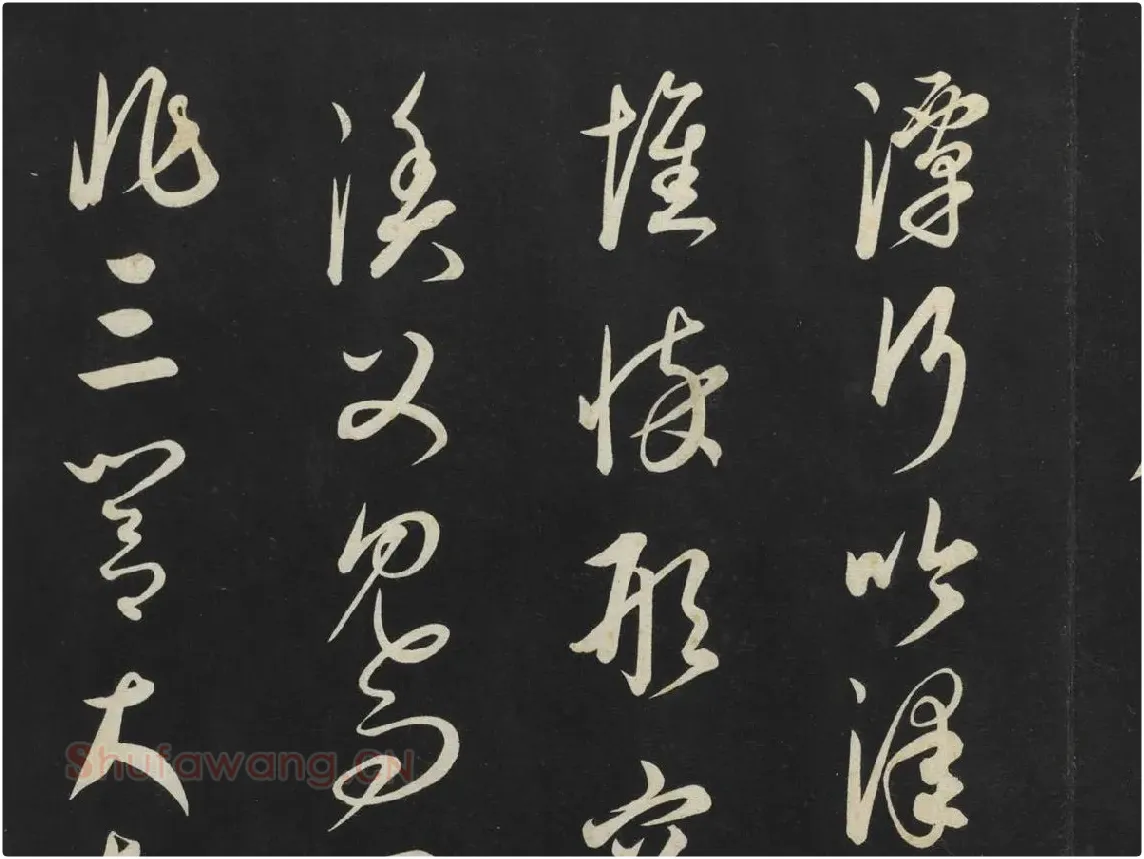 潭行吟澤
憔悴形容
漁父見而
非三閭大
Shufawang.CN